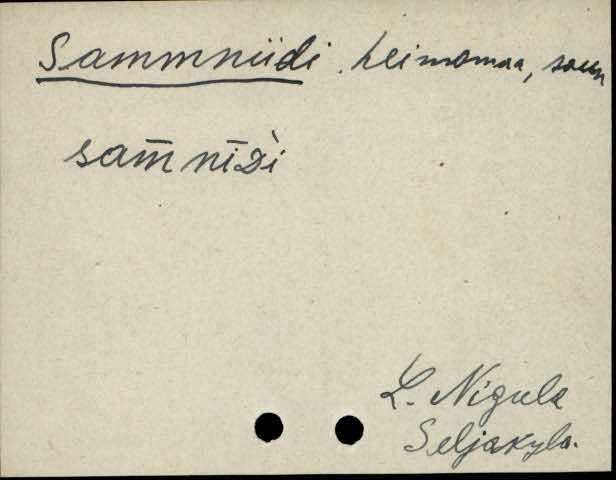 Sammniidi heinamaa, saun
sam̄ nīᴅ̀i
L. Nigula
Seljaküla.